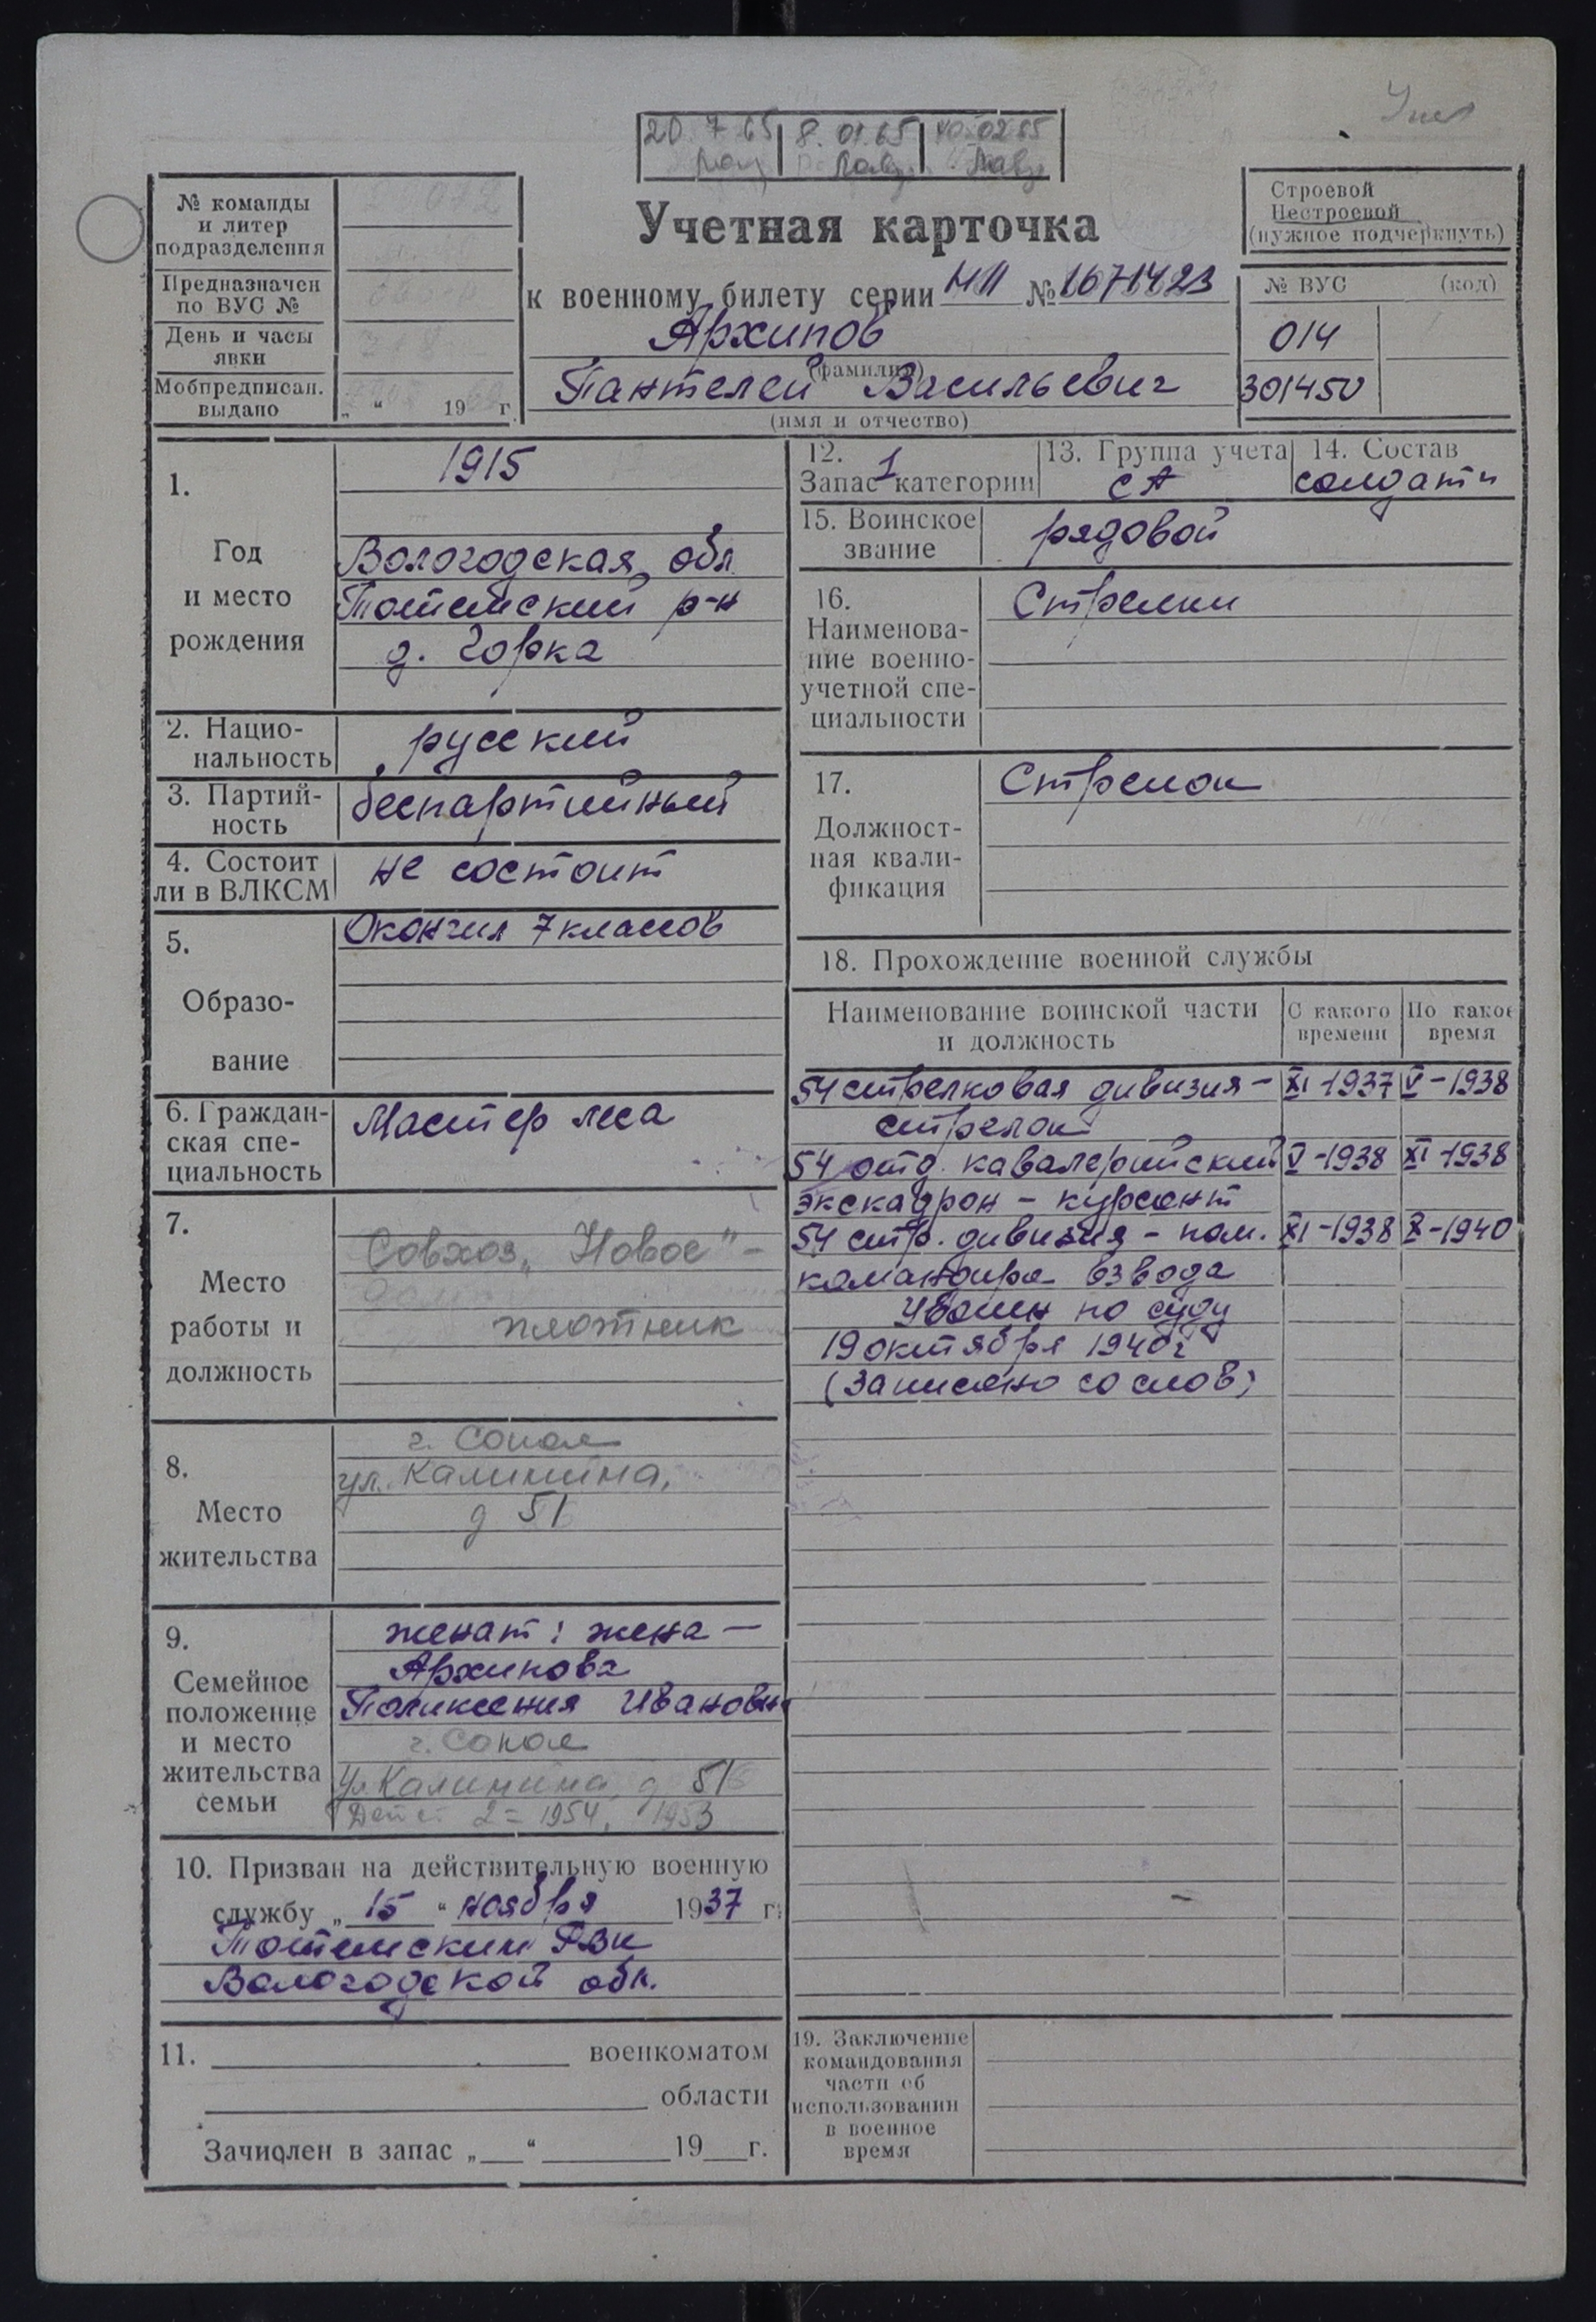 20.7.65 8.01.65
№ команды
и литер
подразделения
Предназначен
по ВУС №
День и часы
явки
Мобпредписан.
выдано
„ “ 19 г.
Учетная карточка
к военному билету серии НП № 1671423
Архипов
(фамилия)
Пантелей Васильевич
(имя и отчество)
Строевой
Нестроевой
(нужное подчеркнуть)
№ ВУС (код)
014
301450
1.
Год
и место
рождения
1915
Вологодская обл
Тотемский р-н
д. Горка
2. Нацио-
нальность
русский
3. Партий-
ность
беспартийный
4. Состоит
ли в ВЛКСМ
не состоит
5.
Образо-
вание
Окончил 7 классов
6. Граждан-
ская спе-
циальность
Мастер леса
7.
Место
работы и
должность
Совхоз „Новое“ –
плотник
8.
Место
жительства
г. Сокол
ул. Калинина,
д 51
9.
Семейное
положение
и место
жительства
семьи
женат: жена —
Архипова
Поликсения Ивановн
г. Сокол
ул. Калинина д 51
Детей 2 = 1954, 1953
10. Призван на действительную военную
службу „ 15 “ ноября 1937 г.
Тотемским РВК
Вологодской обл.
11. военкоматом
области
Зачислен в запас „ “ 19 г.
12.
Запас 1 категории
13. Группа учета
СА
14. Состав
солдаты
15. Воинское
звание
рядовой
16.
Наименова-
ние военно-
учетной спе-
циальности
Стрелки
17.
Должност-
ная квали-
фикация
Стрелок
18. Прохождение военной службы
Наименование воинской части
и должность
С какого
времени
По какое
время
54 стрелковая дивизия – XI-1937 V-1938
стрелок
54 отд. кавалерийский V-1938 XI-1938
экскадрон – курсант
54 стр. дивизия – пом. XI-1938 X-1940
командира взвода
Уволен по суду
19 октября 1940г
(Записано со слов)
19. Заключение
командования
части об
использовании
в военное
время